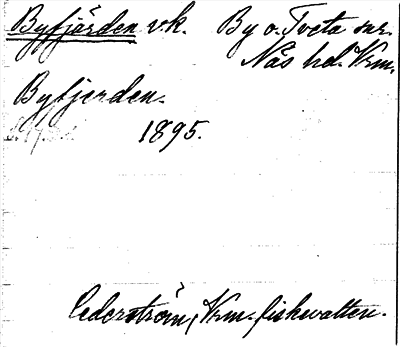 Byfjärden v.k. By o. Tveta snr.
Näs hd. Vrm.
Byfjerden.
1895.
Cederström, Vrm. fiskvatten.